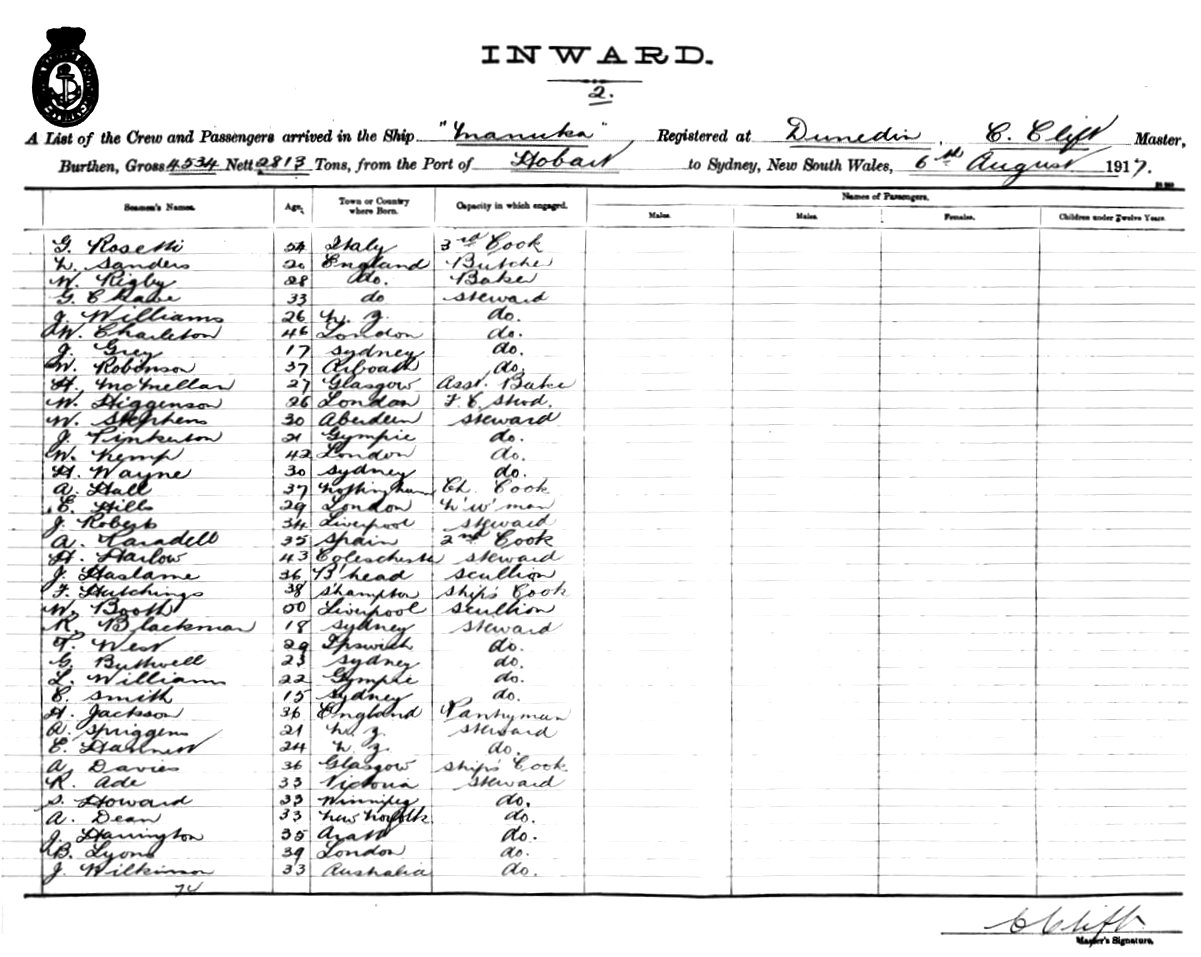 INWARD.
2.
A List of the Crew and Passengers arrived in the Ship "Manuka" Registered at Dunedin, C. Clift Master,
Burthen, Gross 4534 Nett 2813 Tons, from the Port of Hobart to Sydney, New South Wales, 6th August 1917.
Names of Passengers.
Seamen's Names. Age. Town or Country where Born. Capacity in which engaged. Males. Males. Females. Children under Twelve Years.
G. Rosetti Italy 3rd Cook
Sanders 20 England Butche
W. Rigby 28 do. Baker
G. 33 do steward
J. Williams 26 N. Z. do.
W. Charleton 46 London do.
J. Grey 17 Sydney do.
W. Robinson 37 Arboath do.
H. McMellan 27 Glasgow Asst. Bake
W. Higgenson 26 London F. C. Stwd.
W. Stephens 30 Aberdeen steward
J. Pinkerton 21 Gympie do.
W. Kemp 42 London do.
H. Wayne 30 Sydney do.
A. Hall 37 Nottingham Ch. Cook
E. Hills 29 London N'W'man
J. Roberts 34 Liverpool steward
A. 35 Spain 2nd Cook
H. Harlow 43 Coleschester steward
J. Haslame 36 B'head scullion
F. Hutchings 38 Shampton Ship's Cook
W. Booth 50 Liverpool scullion
R. Blackman 18 Sydney steward
T. West 29 Ipswich do.
G. Buthwell 23 Sydney do.
L. Williams 22 Gympie do.
C. Smith 15 Sydney do.
H. Jackson 36 England Pantryman
A. Spriggens 21 N. Z. steward
E. Hannett 24 N. Z. do.
A. Davies 36 Glasgow Ship's Cook
R. Ade 33 Victoria steward
S. Howard 33 Winnipeg do.
A. Dean 33 New Norfolk do.
J. Harrington 35 do.
B. Lyons 39 London do.
J. Wilkinson 33 Australia do.
C Clift
Master's Signature.